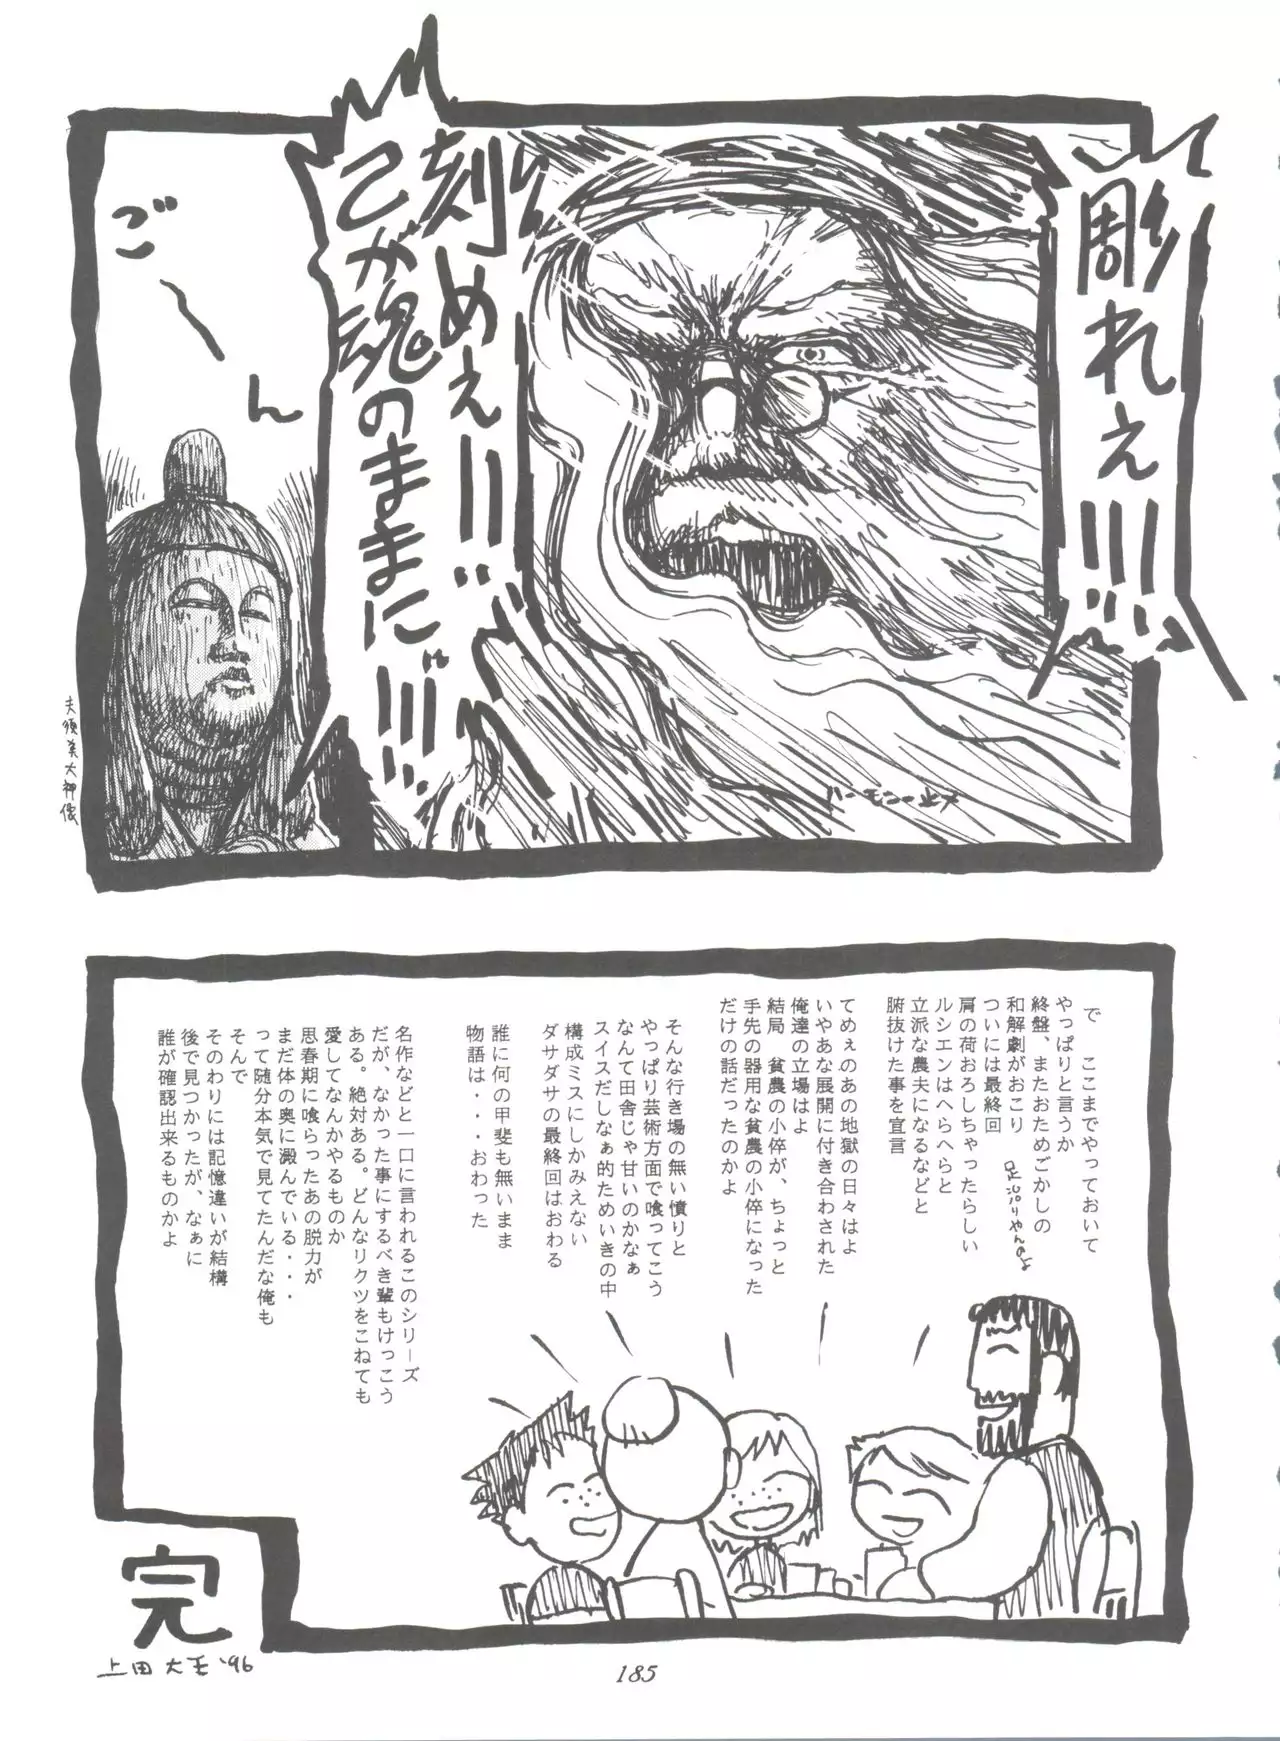 彫れぇ!!!!
刻めぇ!!
己が魂のままに!!!
ご〜ん
夫須美大神像
で　ここまでやっておいて
やっぱりと言うか
終盤、またおためごかしの
和解劇がおこり
ついには最終回
肩の荷おろしちゃったらしい
ルシエンはへらへらと
立派な農夫になるなどと
腑抜けた事を宣言
てめぇのあの地獄の日々はよ
いやあな展開に付き合わされた
俺達の立場はよ
結局　貧農の小倅が、ちょっと
手先の器用な貧農の小倅になった
だけの話だったのかよ
そんな行き場の無い憤りと
やっぱり芸術方面で喰ってこう
なんて田舎じゃ甘いのかなぁ
スイスだしなぁ的ためいきの中
構成ミスにしかみえない
ダサダサの最終回はおわる
誰に何の甲斐も無いまま
物語は・・・おわった
名作などと一口に言われるこのシリーズ
だが、なかった事にするべき輩もけっこう
ある。絶対ある。どんなリクツをこねても
愛してなんかやるものか
思春期に喰らったあの脱力が
まだ体の奥に澱んでいる・・・
って随分本気で見てたんだな俺も
そんで
そのわりには記憶違いが結構
後で見つかったが、なぁに
誰が確認出来るものかよ
完
上田大王'96
185